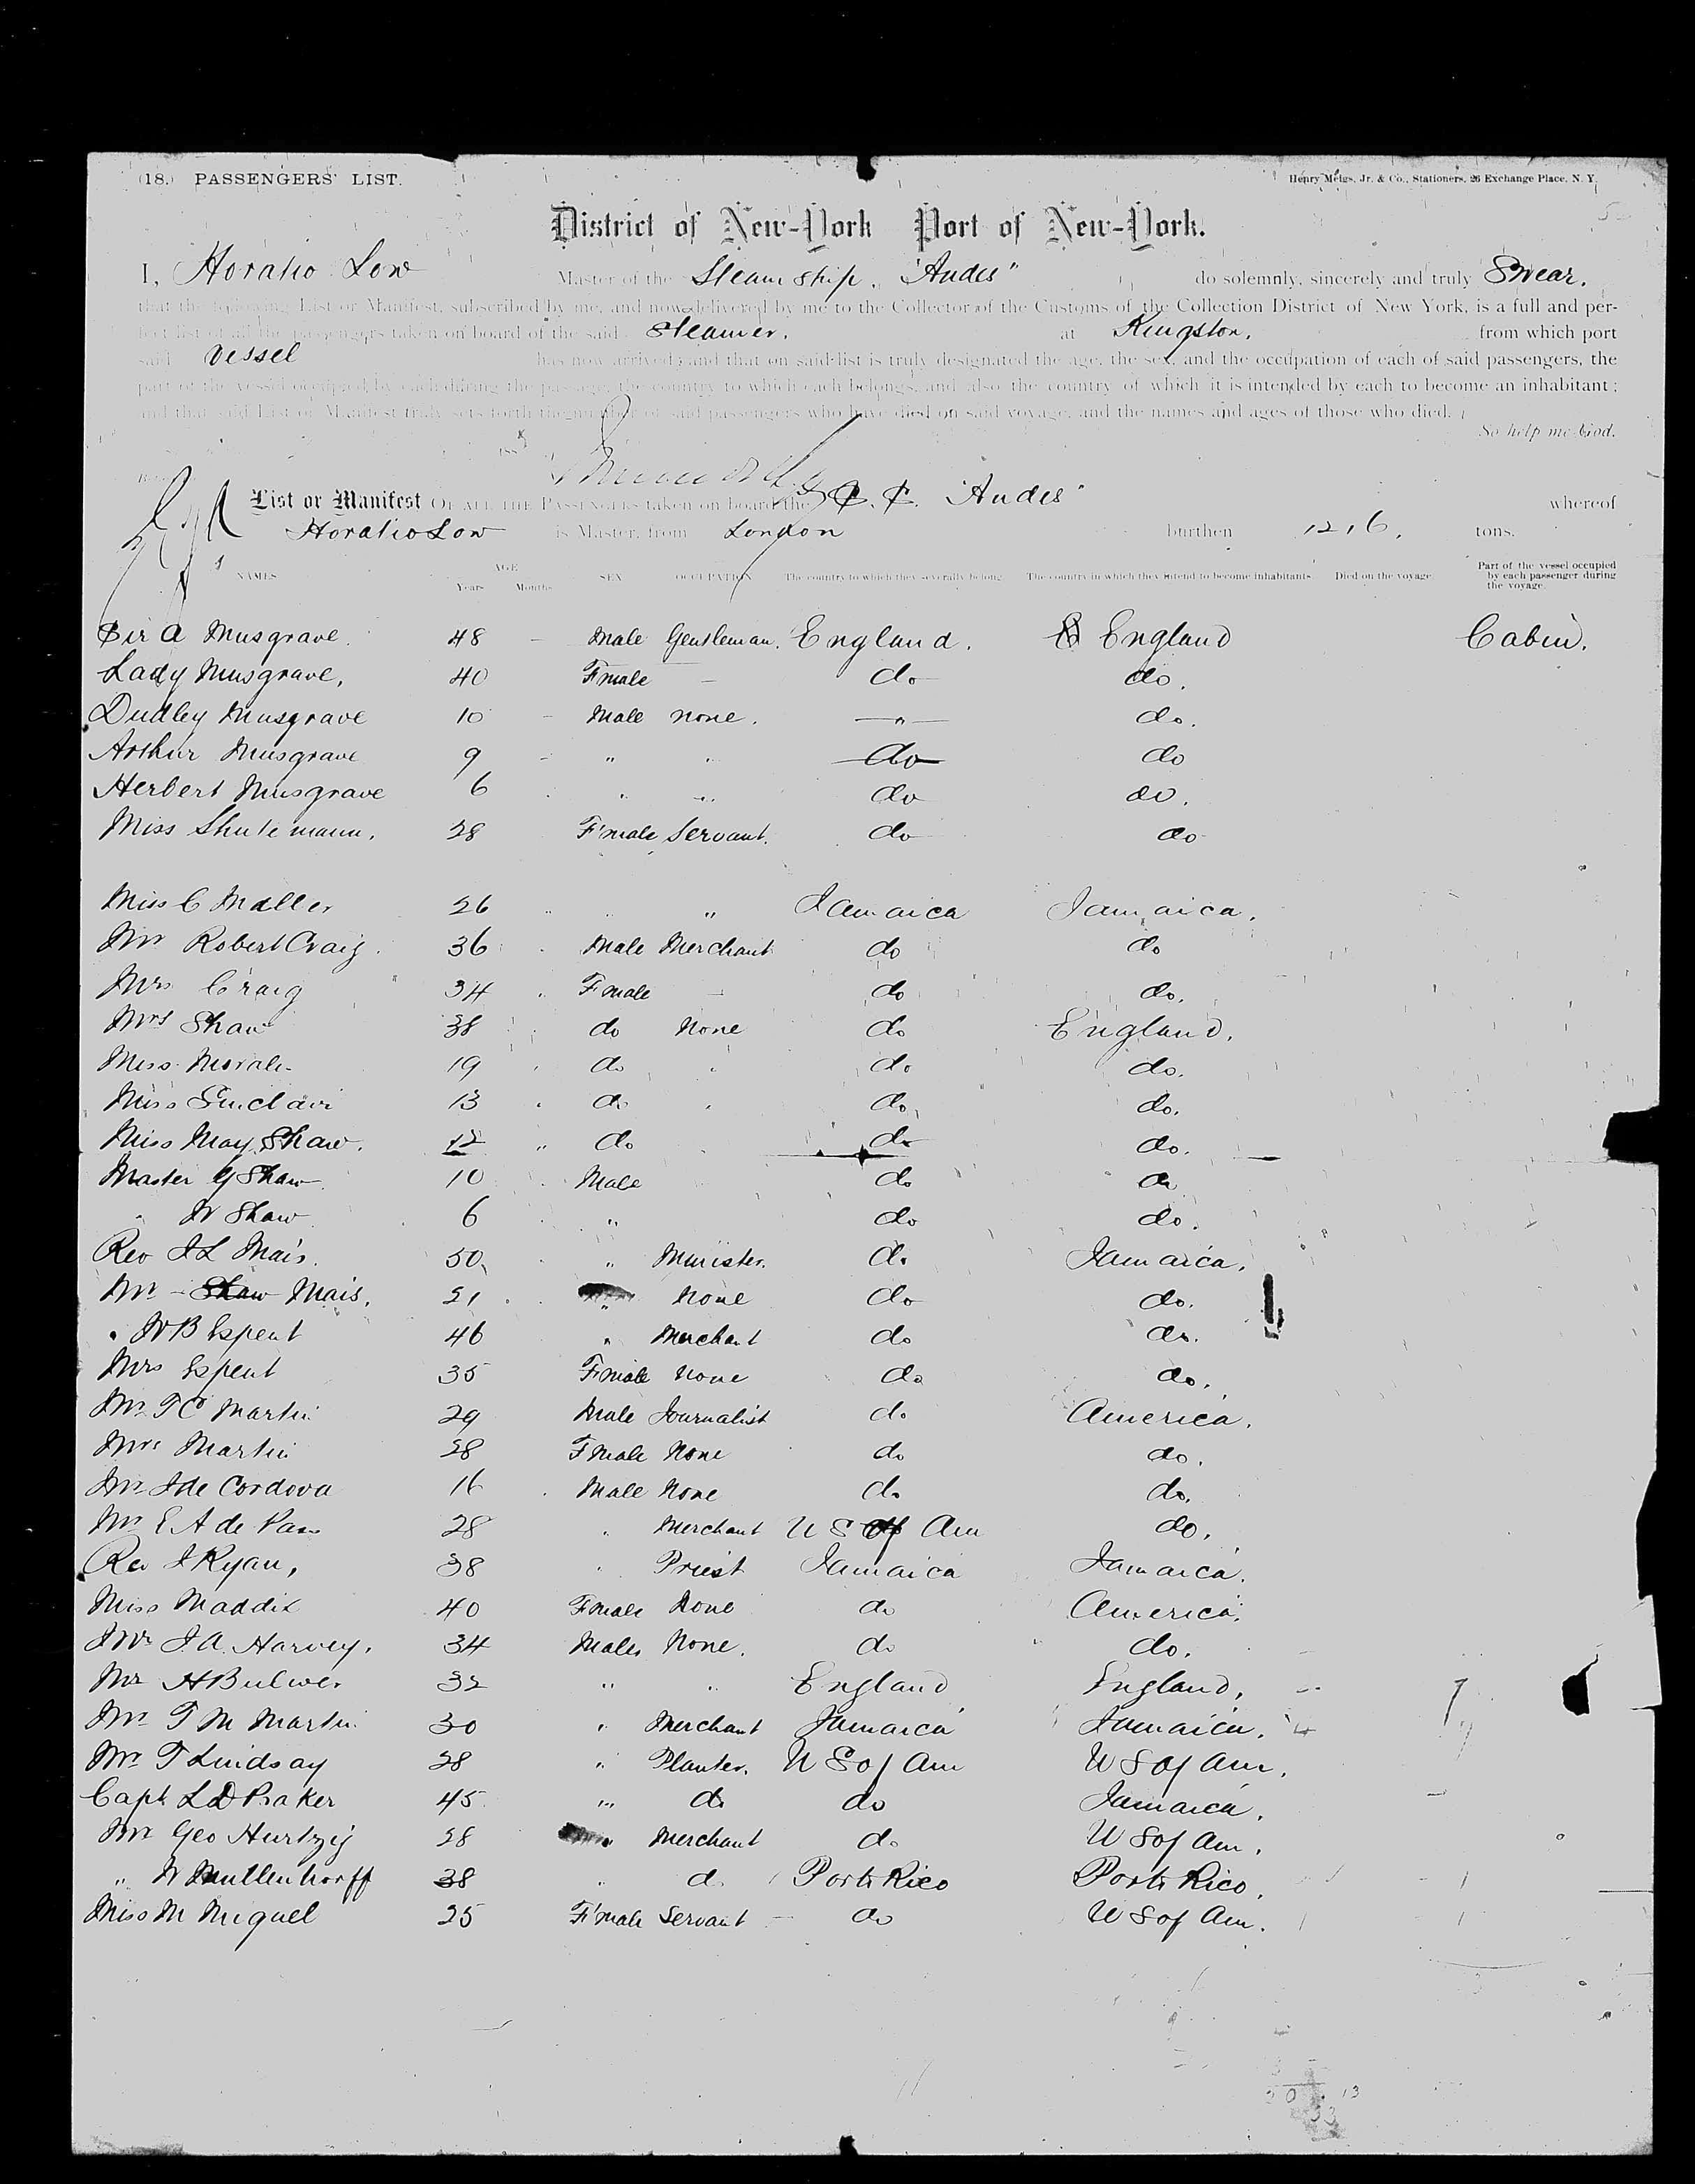 (18.) PASSENGERS' LIST.
Henry Meigs, Jr. & Co., Stationers, 26 Exchange Place, N. Y.
District of New-York Port of New-York.
I, Horatio Low Master of the Steam Ship, "Andes" do solemnly, sincerely and truly Swear.
that the following List or Manifest, subscribed by me, and now delivered by me to the Collector of the Customs of the Collection District of New York, is a full and per-
fect list of all the passengers taken on board of the said Steamer. at Kingston, from which port
said Vessel has now arrived; and that on said list is truly designated the age, the sex, and the occupation of each of said passengers, the
part of the vessel occupied by each during the passage, the country to which each belongs, and also the country of which it is intended by each to become an inhabitant;
and that said List or Manifest truly sets forth the number of said passengers who have died on said voyage, and the names and ages of those who died.
So help me God.
188
List or Manifest OF ALL THE PASSENGERS taken on board the S.S. "Andes" whereof
Horatio Low is Master, from London burthen 1216. tons.
NAMES AGE Years Months SEX OCCUPATION The country to which they severally belong The country in which they intend to become inhabitants. Died on the voyage. Part of the vessel occupied by each passenger during the voyage.
Sir A Musgrave. 48 - Male Gentleman. England. England Cabin.
Lady Musgrave, 40 Fmale - do do.
Dudley Musgrave 10 - Male none. — " — do.
Arthur Musgrave 9 - " " do do
Herbert Musgrave 6 " " do do.
Miss Shutemann. 28 Fmale Servant. do do
Miss C Maller 26 " " Jamaica Jamaica.
Mr Robert Craig. 36 Male Merchant do do
Mrs Craig 34 Fmale - do do.
Mrs Shaw 38 do None do England.
Miss 19 do do do.
Miss Sinclair 13 do do do.
Miss May Shaw. 12 do do do.
Master G Shaw 10 Male do do
" W Shaw 6 " do do.
Rev J L Mais. 50 " Minister. do Jamaica.
Mr Shaw Mais. 21 " None do do.
" W B Espeut 46 " Merchant do do.
Mrs Espeut 35 Fmale None do do.
Mr T C Martin 29 Male Journalist do America.
Mrs Martin 28 Fmale None do do.
Mr J de Cordova 16 Male None do do.
Mr E A de Pass 28 " Merchant U S of Am do.
Rev J Ryan, 38 " Priest Jamaica Jamaica.
Miss Maddix 40 Fmale None do America.
Mr J. A. Harvey. 34 Males None. do do.
Mr H Bulwer 32 " " England England.
Mr T M Martin 30 " Merchant Jamaica Jamaica.
Mr T Lindsay 28 " Planter. U S of Am U S of Am.
Capt L D Baker 45 " do do Jamaica.
Mr Geo Hurtzig 28 " Merchant do U S of Am.
" W Mullenhorff 38 " do Porto Rico Porto Rico.
Miss M Miquel 25 Fmale Servant - do U S of Am.